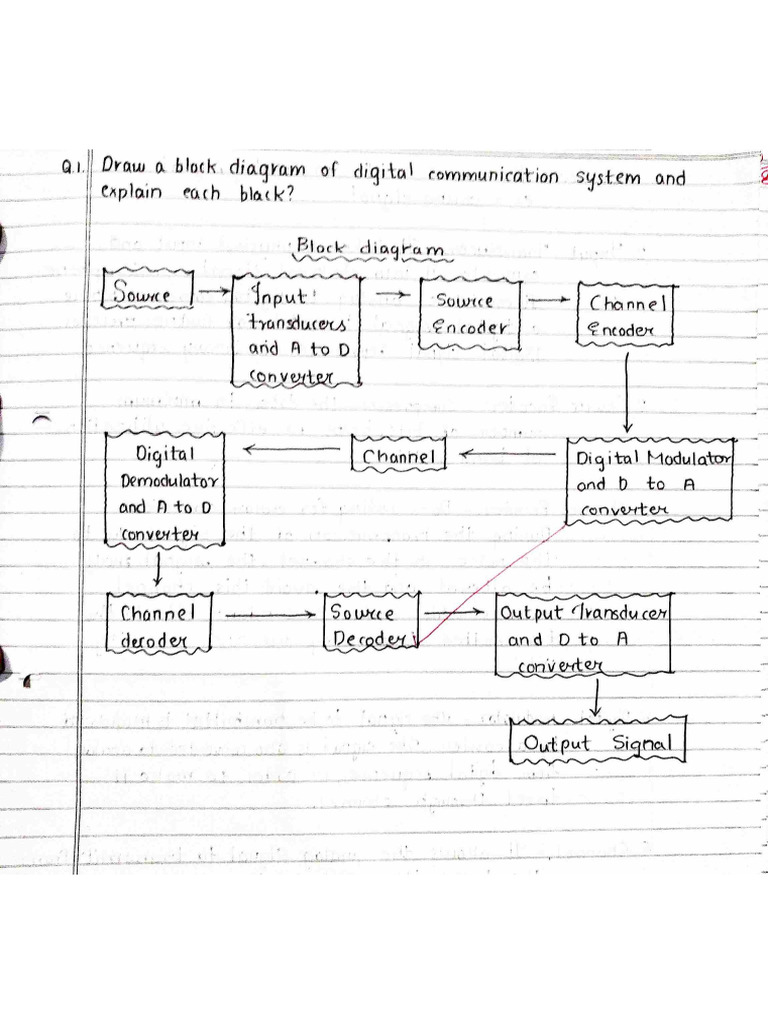 Q.1. Draw a block diagram of digital communication system and
explain each black?
Block diagram
Source
Input
transducers
and A to D
converter
Source
Encoder
Channel
Encoder
Digital Modulator
and D to A
converter
Channel
Digital
Demodulator
and A to D
converter
Channel
decoder
Source
Decoder
Output Transducer
and D to A
converter
Output Signal